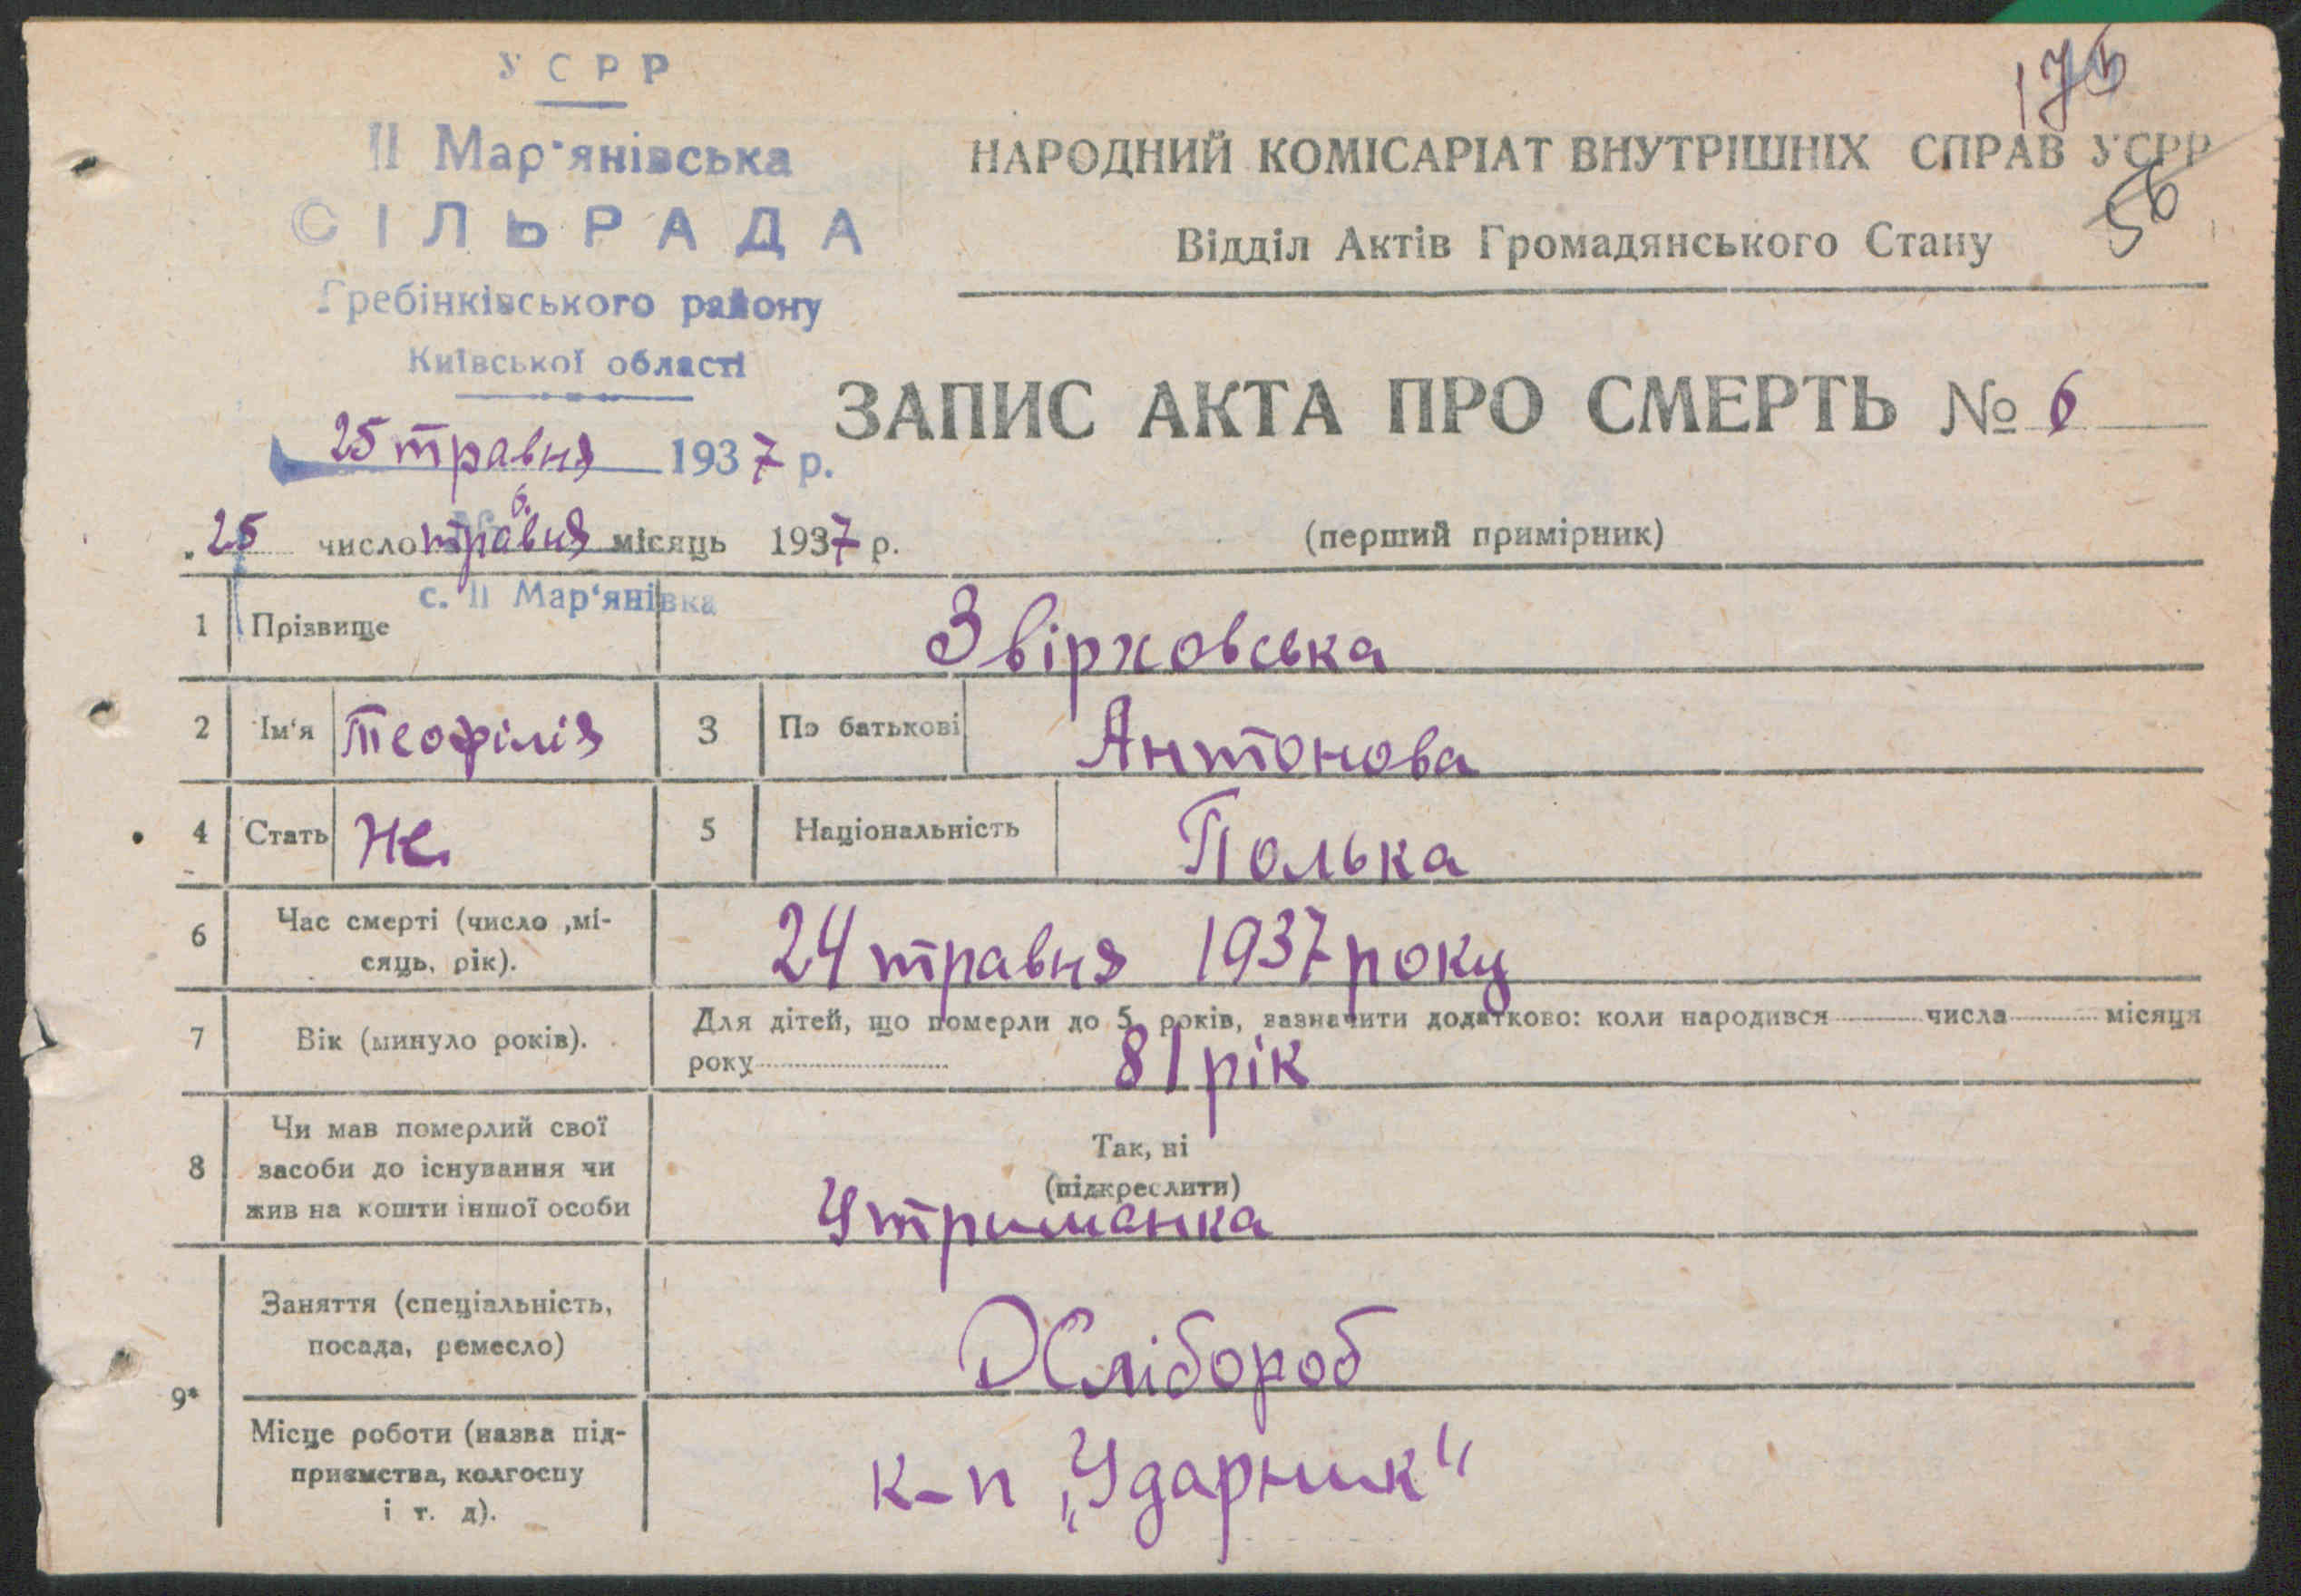 УСРР
ІІ Мар'янівська
СІЛЬРАДА
Гребінківського району
Київської області
25 травня 1937 р.
с. ІІ Мар'янівка
176
56
НАРОДНИЙ КОМІСАРІАТ ВНУТРІШНІХ СПРАВ УСРР
Відділ Актів Громадянського Стану
ЗАПИС АКТА ПРО СМЕРТЬ № 6
25 число травня місяць 1937 р.
(перший примірник)
1 Прізвище Звірховська
2 Ім'я Теофілія 3 По батькові Антонова
4 Стать Же. 5 Національність Полька
6 Час смерті (число ,мі-
сяць, рік).
24 травня 1937 року
7 Вік (минуло років).
Для дітей, що померли до 5 років, зазначити додатково: коли народився числа місяця
року 81 рік
8 Чи мав померлий свої
засоби до існування чи
жив на кошти іншої особи
Так, ні
(підкреслити)
Утриманка
9*
Заняття (спеціальність,
посада, ремесло)
Хлібороб
Місце роботи (назва під-
приємства, колгоспу
і т. д).
к-п „Ударник"